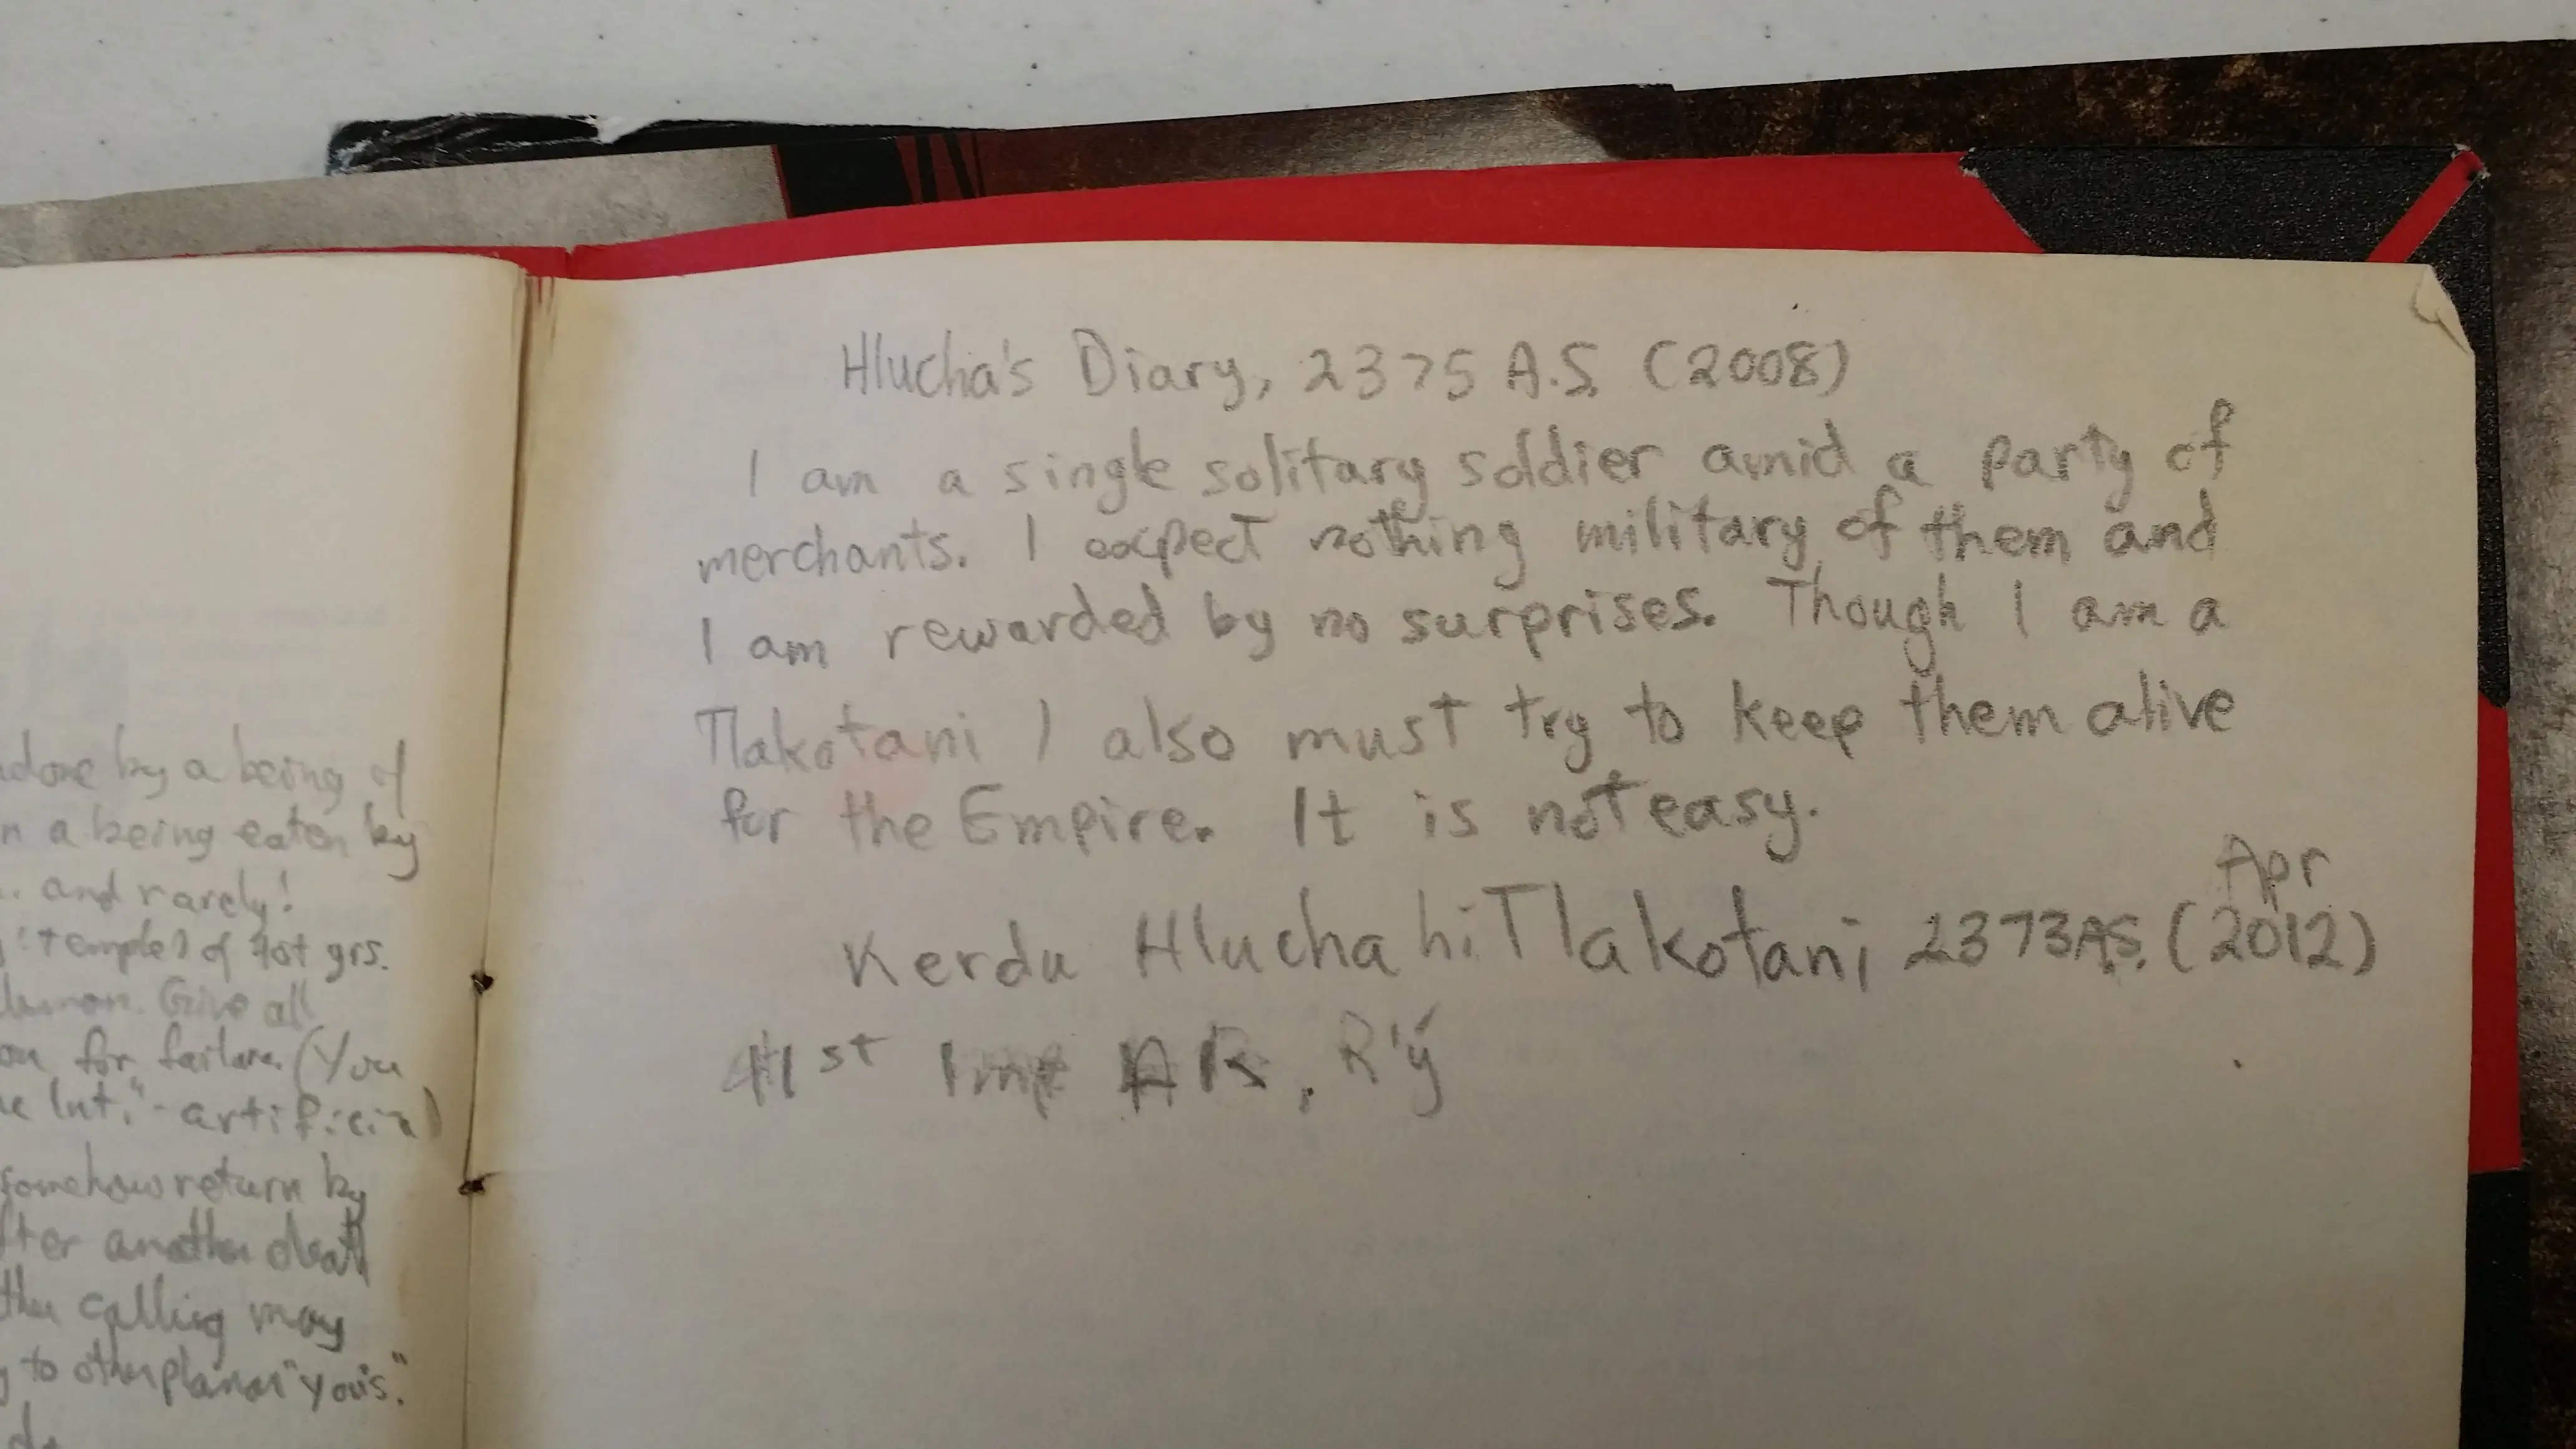 done by a being of
n a being eaten by
.. and rarely!
temple) of got grs.
demon. Give all
on for failure. (You
e Int." - artificial
somehow return by
fter another death
ther calling may
to other planar "you's."
Hlucha's Diary, 2375 A.S. (2008)
I am a single solitary soldier amid a party of
merchants. I expect nothing military of them and
I am rewarded by no surprises. Though I am a
Tlakotani I also must try to keep them alive
for the Empire. It is not easy.
Apr
Kerdu Hlucha hiTlakotani 2373 A.S. (2012)
41st Imp AR, R'ý